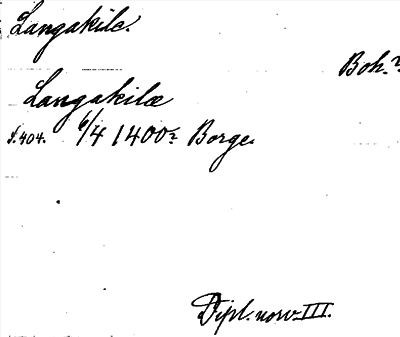 Langakile.
Boh.n.
Langakilæ
S. 404. 6/4 1400n Borge.
Dipl. norv. III.